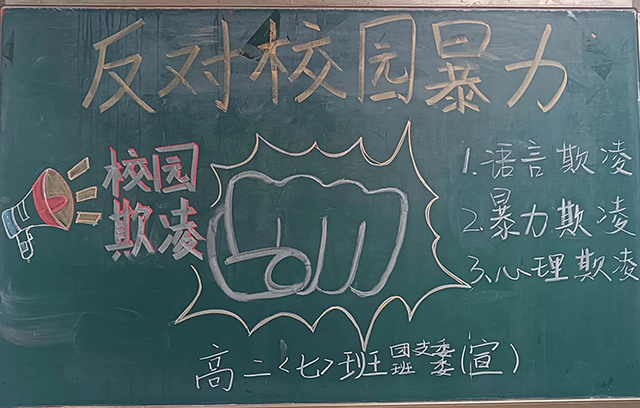 反对校园暴力
校园
欺凌
1.语言欺凌
2.暴力欺凌
3.心理欺凌
高二<七>班 团支委 班委 (宣)